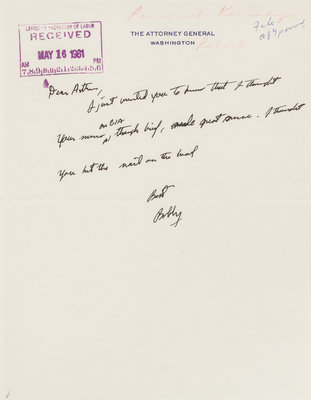 Personal - Kennedy
Robert
File
OFFICE SECRETARY OF LABOR
RECEIVED
MAY 16 1961
AM PM
7,8,9,10,11,12,1,2,3,4,5,6
THE ATTORNEY GENERAL
WASHINGTON
Dear Arthur,
I just wanted you to know that I thought
on CIA
your memo, though brief, made great sense. I thought
you hit the nail on the head
Best
Bobby